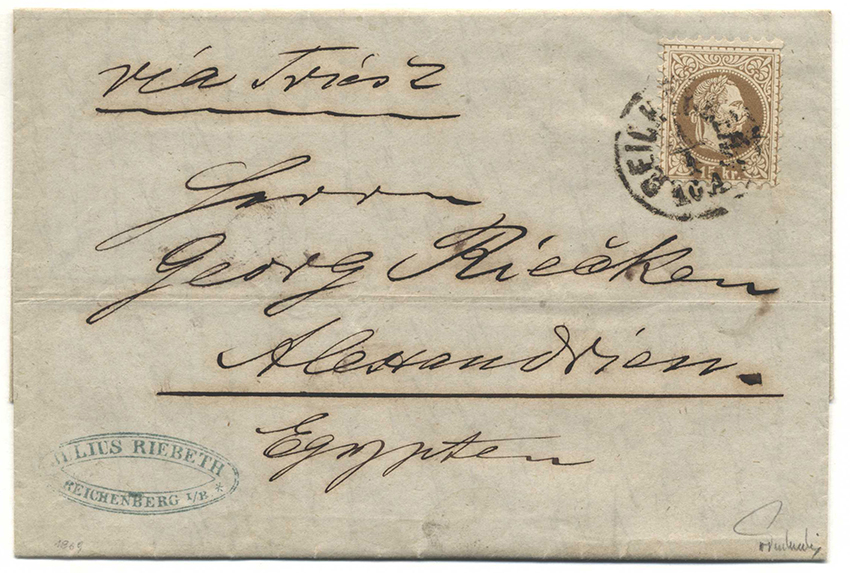 via Triest
Herrn
Georg Riecken
Alexandrien.
Egypten
JULIUS RIEBETH
REICHENBERG I/B. *
REICH
15 Kr.
1869